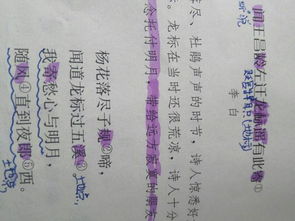 闻王昌龄左迁龙标遥有此寄①
听说
李白
尽、杜鹃声声的时节，诗人惊悉好
标。龙标在当时还很荒凉，诗人十分
念托付明月，带给远方寂寞的朋友
杨花落尽子规②啼，
闻道龙标过五溪④
地点
我寄愁心与明月，
随风⑤直到夜郎⑥西。
地点